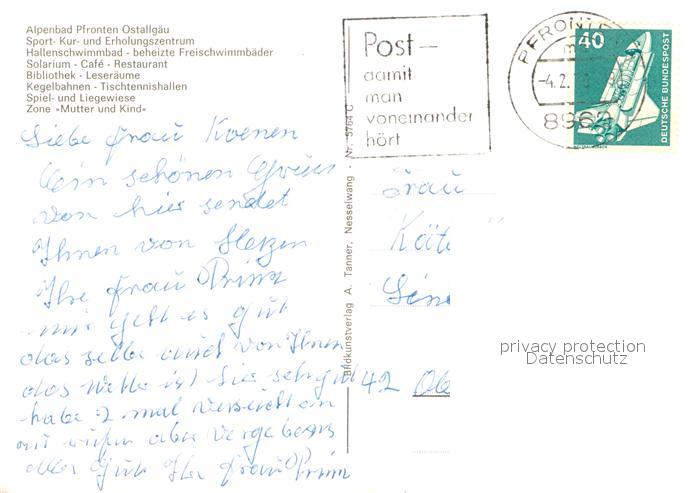 Alpenbad Pfronten Ostallgäu
Sport- Kur- und Erholungszentrum
Hallenschwimmbad - beheizte Freischwimmbäder
Solarium - Café - Restaurant
Bibliothek - Leseräume
Kegelbahnen - Tischtennishallen
Spiel- und Liegewiese
Zone »Mutter und Kind«
Liebe Frau Koenen
Ein schönen Gruss
von hier sendet
Ihnen von Herzen
Ihre Frau Prinz
mir geht es gut
das selbe auch von Ihnen
das Wetter ist sehr gut
habe 2 mal versucht an
aber vergebens
alles Gute Ihre Frau Prinz
Bildkunstverlag A. Tanner, Nesselwang - Nr. 5704 C
Post –
damit
man
voneinander
hört
PFRONTEN
-4.2.
896
40
DEUTSCHE BUNDESPOST
Frau
Käte
42 Obe
privacy protection
Datenschutz